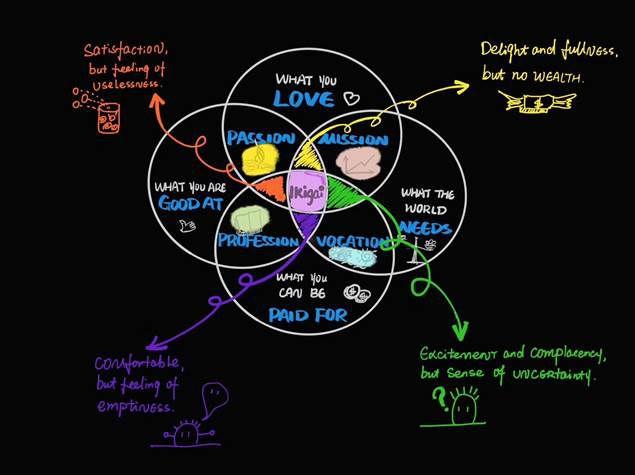 Satisfaction,
but feeling of
uselessness.
Delight and fullness,
but no WEALTH.
WHAT YOU
LOVE
PASSION
MISSION
WHAT YOU ARE
GOOD AT
Ikigai
WHAT THE
WORLD
NEEDS
PROFESSION
VOCATION
WHAT YOU
CAN BE
PAID FOR
Comfortable,
but feeling of
emptiness.
Excitement and complacency,
but sense of uncertainty.
?